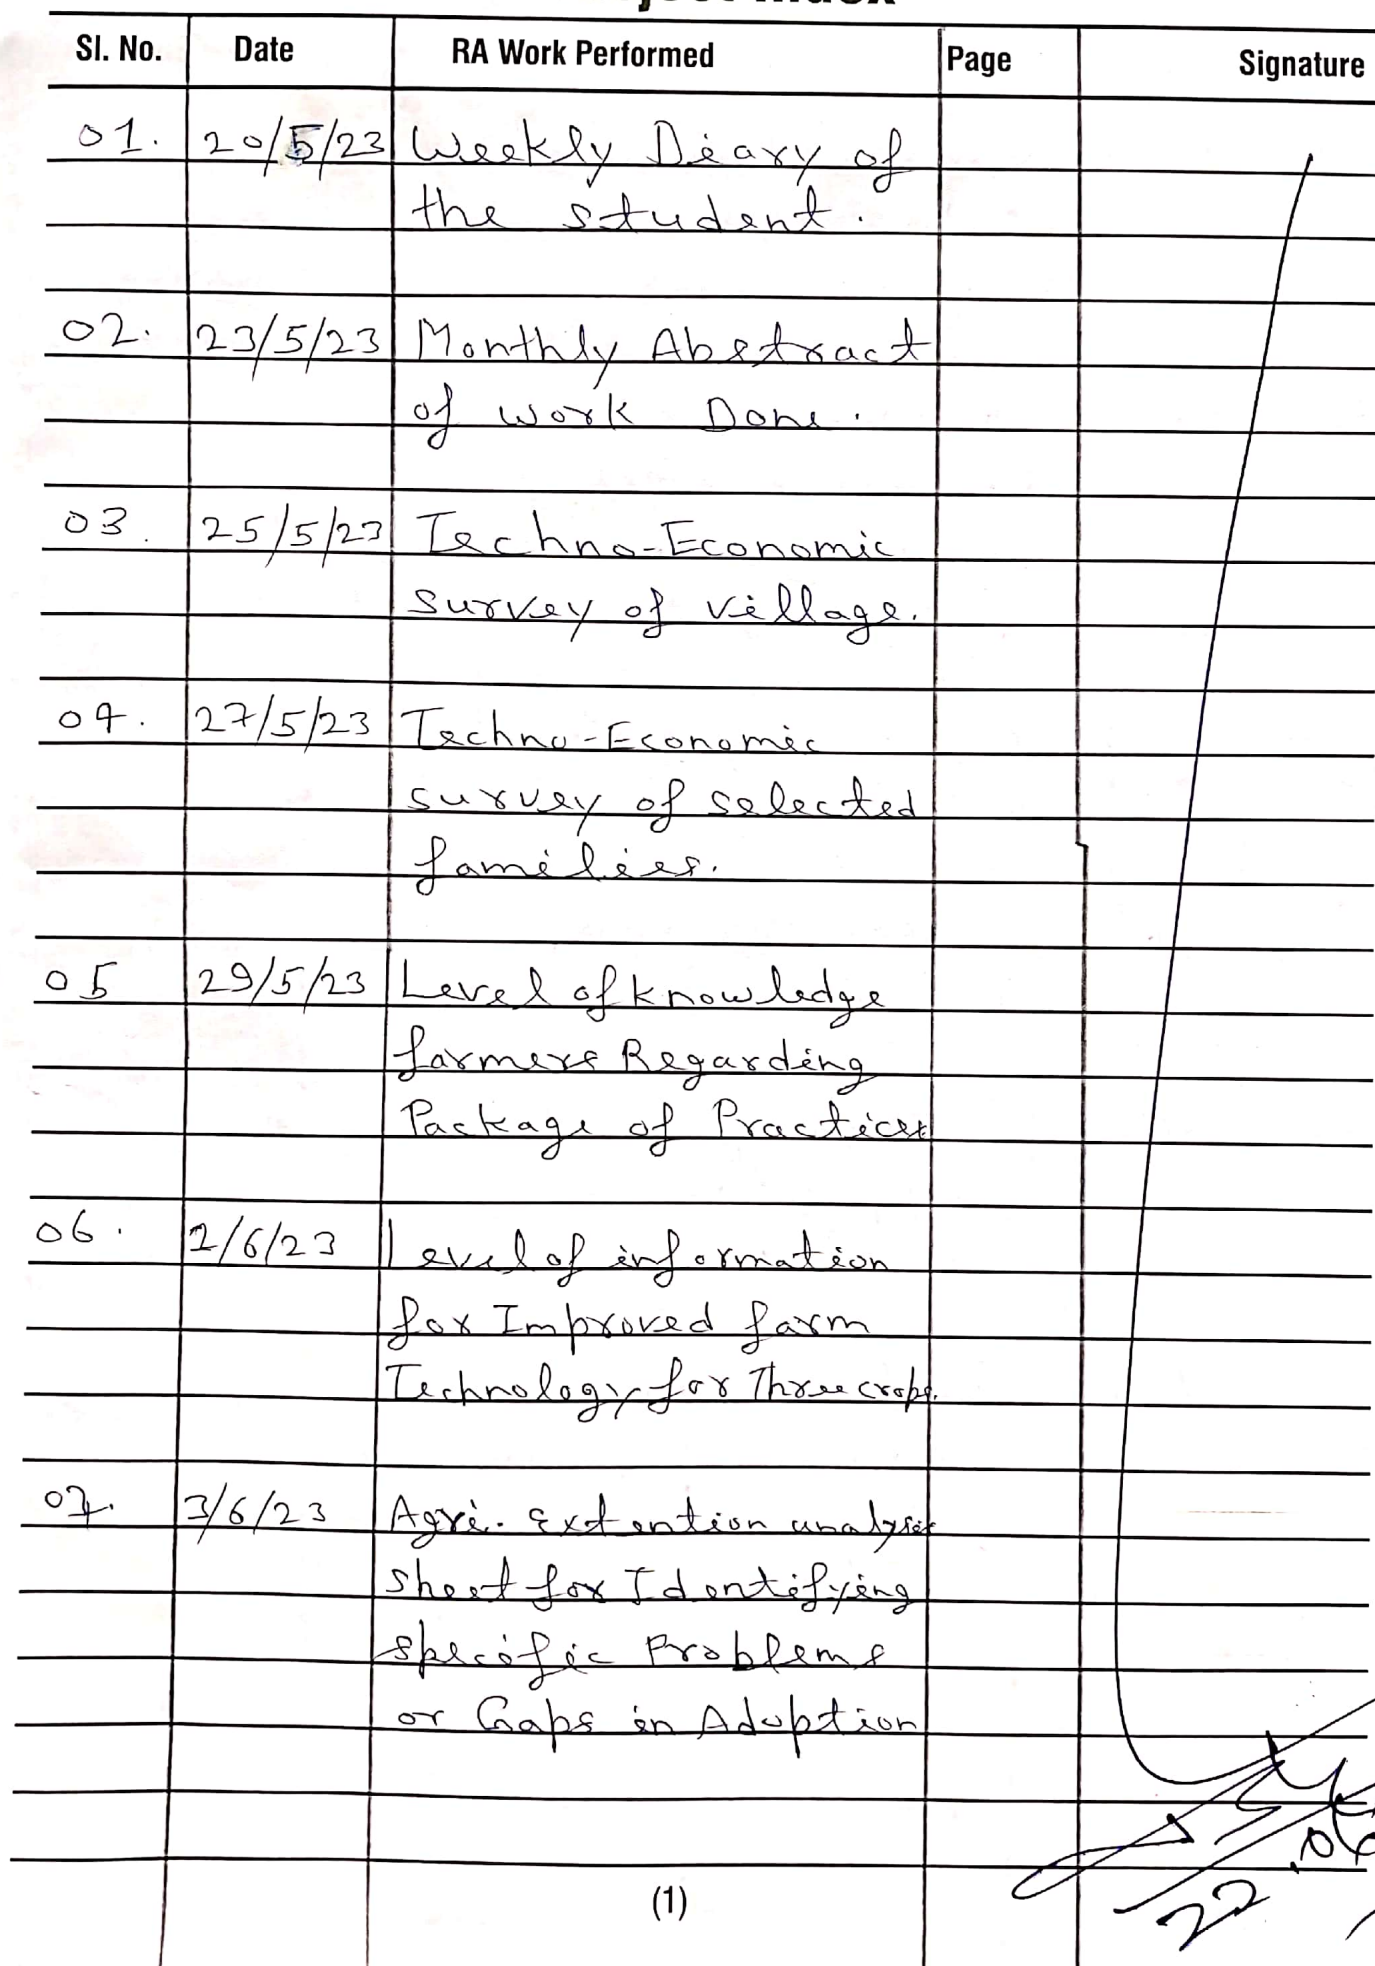 Sl. No. Date RA Work Performed Page Signature
01. 20/5/23 Weekly Diary of
the student.
02. 23/5/23 Monthly Abstract
of work Done.
03. 25/5/23 Techno-Economic
survey of village.
04. 27/5/23 Techno-Economic
survey of selected
families.
05 29/5/23 Level of knowledge
farmers Regarding
Package of Practices
06. 2/6/23 Level of information
for Improved farm
Technology for Three crops.
07. 3/6/23 Agri. Extention analysis
sheet for Identifying
specific Problems
or Gaps in Adoption
22
(1)